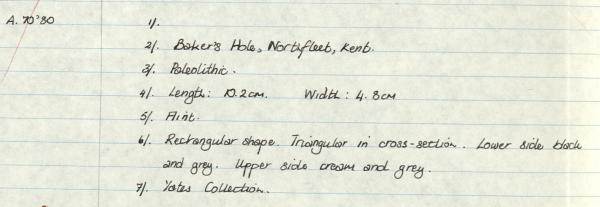 A. 70'80 1/.
2/. Baker's Hole, Northfleet, Kent.
3/. Paleolithic.
4/. Length: 10.2cm. Width: 4.8cm
5/. Flint.
6/. Rectangular shape. Triangular in cross-section. Lower side black
and grey. Upper side cream and grey.
7/. Yates Collection.